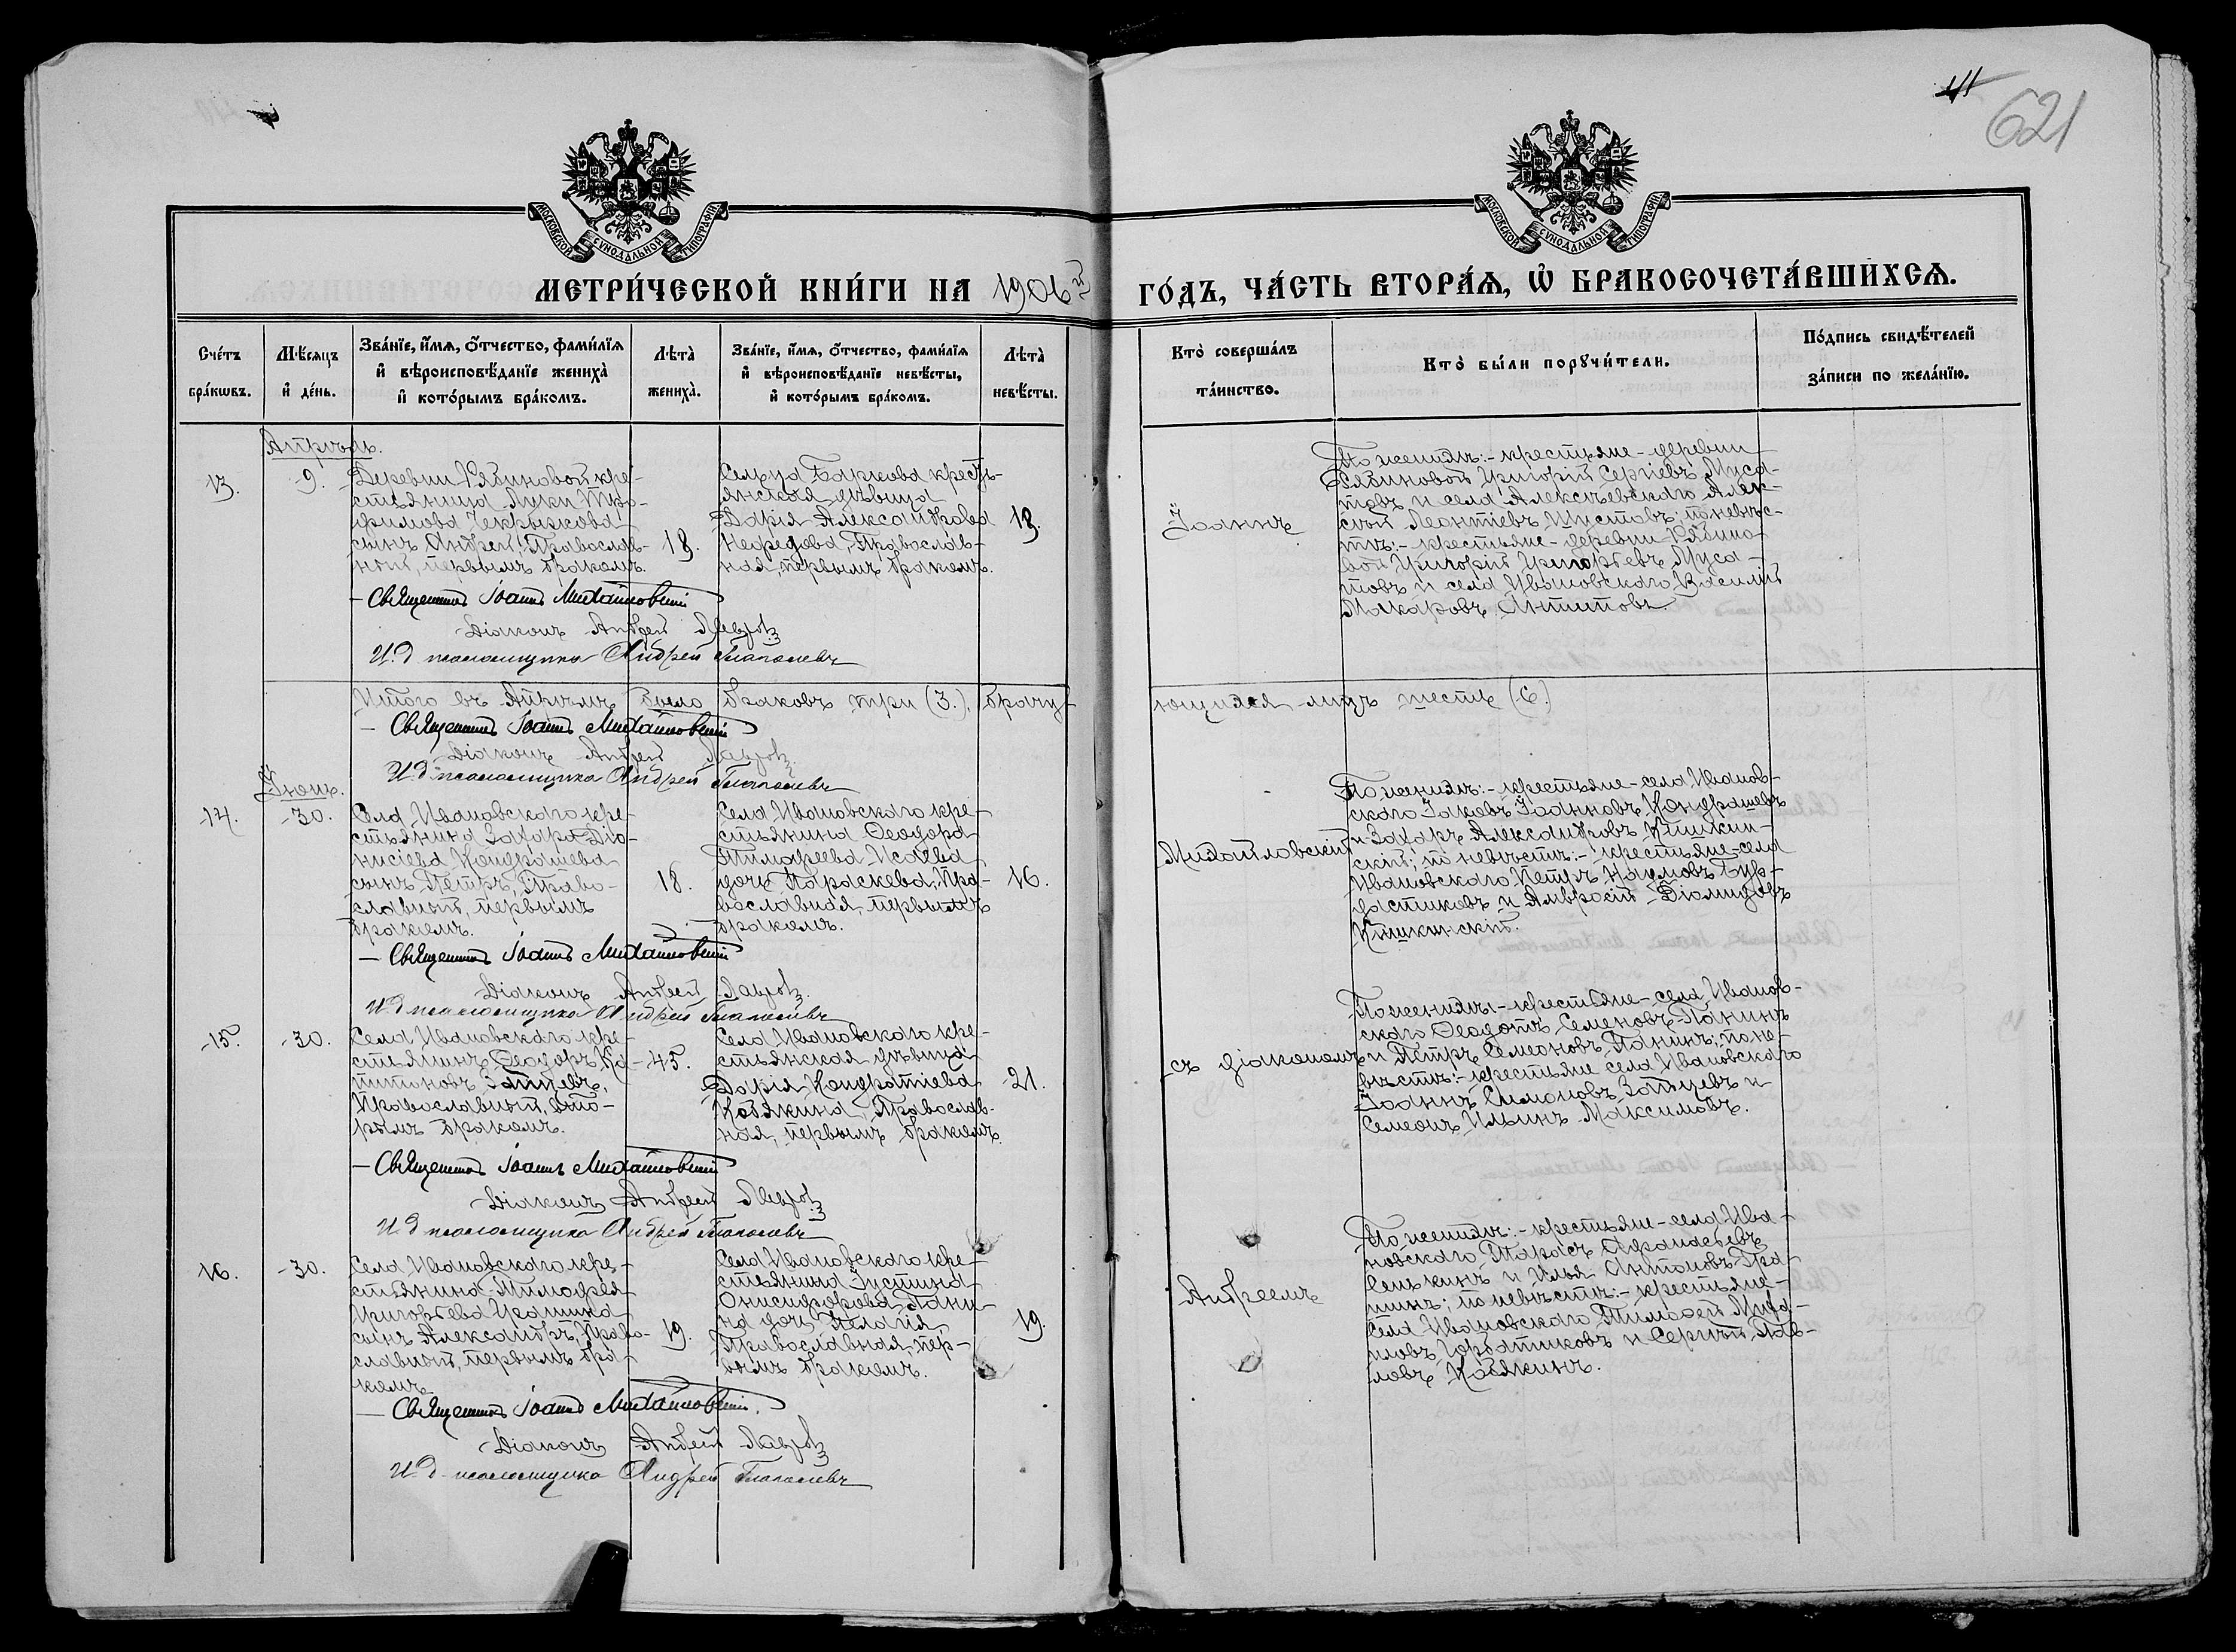 621
МОСКОВСКОЙ СѴНОДАЛЬНОЙ ТИПОГРАФІИ.
МОСКОВСКОЙ СѴНОДАЛЬНОЙ ТИПОГРАФІИ.
МЕТРИ́ЧЕСКОЙ КНИ́ГИ НА 1906й ГО́ДЪ, ЧА́СТЬ ВТОРА́Ѧ, Ѡ҆ БРАКОСОЧЕТА́ВШИХСѦ.
Сче́тъ
бра́кѡвъ.
Мѣ́сяцъ
и҆ де́нь.
Зва́нїе, и҆́мѧ, ѻ҆́тчество, фами́лїѧ
и҆ вѣроисповѣ́данїе жениха̀
и҆ кото́рымъ бра́комъ.
Лѣта̀
жениха̀.
Зва́нїе, и҆́мѧ, ѻ҆́тчество, фами́лїѧ
и҆ вѣроисповѣ́данїе невѣ́сты,
и҆ кото́рымъ бра́комъ.
Лѣта̀
невѣ́сты.
Кто̀ соверша́лъ
та́инство.
Кто̀ бы́ли порꙋчи́тели.
По́дпись свидѣ́телей
за́писи по жела́нїю.
Апрѣль.
13.
9.
Деревни Рябиновой кре-
стьянина Луки Тро-
фимова Чекрыжова
сынъ Андрей, Православ-
ный, первымъ бракомъ.
18.
Сельца Баркова кресть-
янская дѣвица
Дарія Александрова
Нефедова, Православ-
ная, первымъ бракомъ.
18.
Іоаннъ
По женихѣ:- крестьяне - деревни
Рябиновой Григорій Сергіевъ Муса-
товъ и села Алексѣевскаго Алек-
сѣй Леонтіевъ Шустовъ; по невѣс-
тѣ:- крестьяне - деревни Рябино-
вой Григорій Григорьевъ Муса-
товъ и села Ивановскаго Василій
Макаровъ Антиповъ.
- Священникъ Іоаннъ Михайловскій
Діаконъ Андрей Лавровъ
И. д. псаломщика Андрей
Итого въ Апрѣлѣ было браковъ три (3.), брачу-
ющихся лицъ шесть (6.)
- Священникъ Іоаннъ Михайловскій
Діаконъ Андрей Лавровъ
И. д. псаломщика Андрей
Іюнь.
14.
30.
Села Ивановскаго кре-
стьянина Захара Діо-
нисіева Кондрашева
сынъ Петръ, Право-
славный, первымъ
бракомъ.
18.
Села Ивановскаго кре-
стьянина Ѳеодора
Тимофеева Исаева
дочь Параскева, Пра-
вославная, первымъ
бракомъ.
16.
Михайловскій
По женихѣ:- крестьяне - села Иванов-
скаго Іаковъ Іоанновъ Кондрашевъ
и Захаръ Александровъ Кишкин-
скій; по невѣстѣ:- крестьяне села
Ивановскаго Петръ Наумовъ Бур-
дастиковъ и Амвросій Діомидовъ
Кишкинскій.
- Священникъ Іоаннъ Михайловскій
Діаконъ Андрей Лавровъ
И. д. псаломщика Андрей
15.
30.
Села Ивановскаго кре-
стьянинъ Ѳеодоръ Ка-
питоновъ Зайцевъ,
Православный, вто-
рымъ бракомъ.
45.
Села Ивановскаго кре-
стьянская дѣвица
Дарія Кондратіева
Кобякина, Православ-
ная, первымъ бракомъ.
21.
съ діакономъ
По женихѣ:- крестьяне - села Иванов-
скаго Ѳеодотъ Семеновъ Панинъ
и Петръ Семеновъ Панинъ; по не-
вѣстѣ:- крестьяне села Ивановскаго
Іоаннъ Симоновъ Зайцевъ и
Семеонъ Ильинъ Максимовъ.
- Священникъ Іоаннъ Михайловскій
Діаконъ Андрей Лавровъ
И. д. псаломщика Андрей
16.
30.
Села Ивановскаго кре-
стьянина Тимофея
Григорьева Грашина
сынъ Александръ, Право-
славный, первымъ бра-
комъ
19.
Села Ивановскаго кре-
стьянина Іустина
Онисифорова Пани-
на дочь Пелагія,
Православная, пер-
вымъ бракомъ.
19.
Андреемъ
По женихѣ:- крестьяне - села Ива-
новскаго Тарасъ Аѳанасьевъ
Сенькинъ и Илья Антоновъ Гра-
шинъ; по невѣстѣ:- крестьяне -
села Ивановскаго Тимоѳей Миха-
иловъ Горбатиковъ и Сергѣй Пав-
ловъ Кобякинъ.
- Священникъ Іоаннъ Михайловскій.
Діаконъ Андрей Лавровъ
И. д. псаломщика Андрей